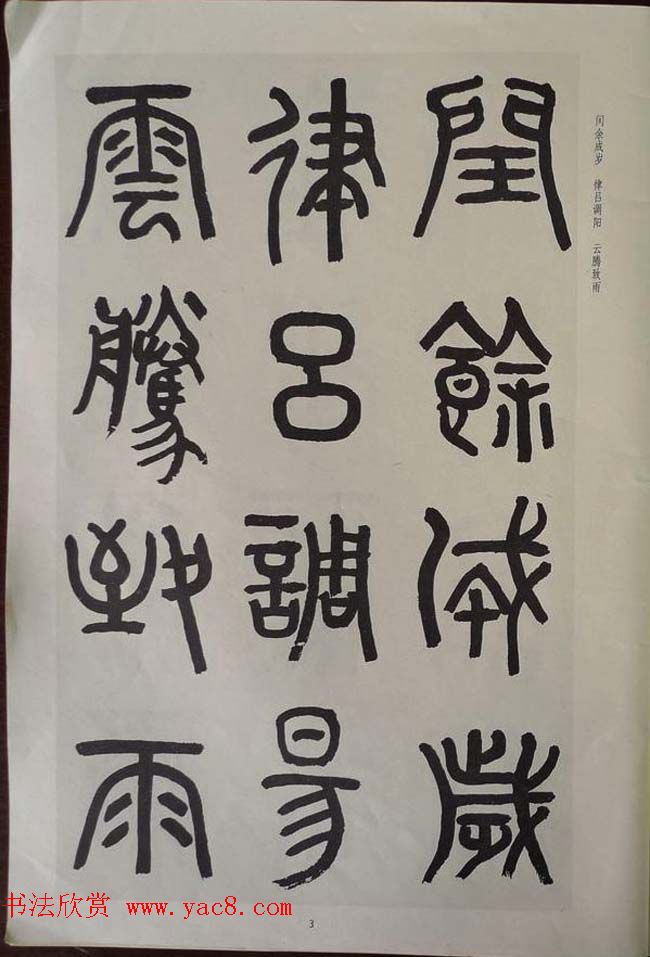 閏餘成歲
律呂調昜
雲騰致雨
闰余成岁 律吕调阳 云腾致雨
书法欣赏 www.yac8.com
3